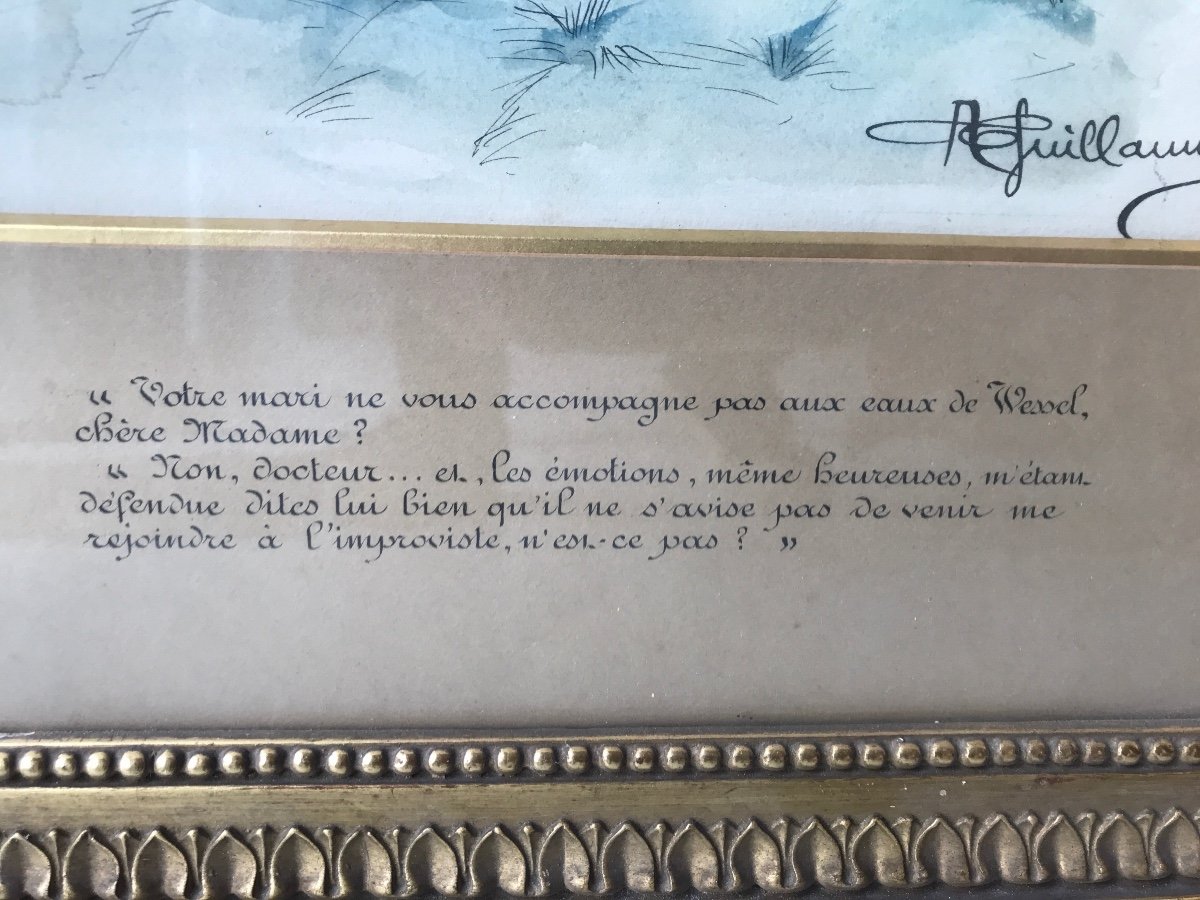 AGuillaum
« Votre mari ne vous accompagne pas aux eaux de Wessel,
chère Madame ?
« Non, docteur... et, les émotions, même heureuses, m'étant
défendue dites lui bien qu'il ne s'avise pas de venir me
rejoindre à l'improviste, n'est-ce pas ? »